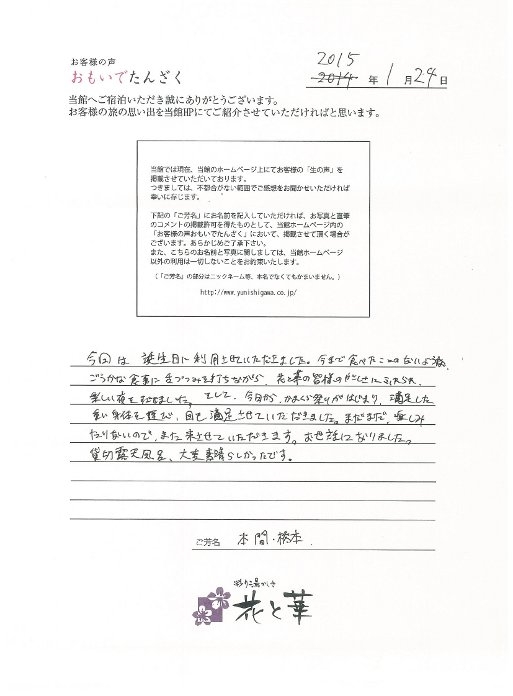 お客様の声
おもいでたんざく
2015
2014 年 1 月 24 日
当館へご宿泊いただき誠にありがとうございます。
お客様の旅の思い出を当館HPにてご紹介させていただければと思います。
当館では現在、当館のホームページ上にてお客様の「生の声」を
掲載させていただいております。
つきましては、不都合がない範囲でご感想をお聞かせいただければ
幸いに存じます。
下記の「ご芳名」にお名前を記入していただければ、お写真と直筆
のコメントの掲載許可を得たものとして、当館ホームページ内の
「お客様の声おもいでたんざく」において、掲載させて頂く場合が
ございます。あらかじめご了承下さい。
また、こちらのお名前と写真に関しましては、当館ホームページ
以外の利用は一切しないことをお約束いたします。
(「ご芳名」の部分はニックネーム等、本名でなくてもかまいません。)
http://www.yunishigawa.co.jp/
今回は 誕生日に利用させていただきました。今まで食べたことのないような
ごうかな食事に舌づつみを打ちながら、花と華の皆様のやさしさにふれられ、
楽しい夜を むかえました。そして、今日から、かまくら祭りがはじまり、満足した
身体を運び、目も満足させていただきました。まだまだ、楽しみ
たりないので、また来させていただきます。お世話になりました。
貸切露天風呂、大変素晴らしかったです。
ご芳名 本間・橋本
彩り湯かしき
花と華